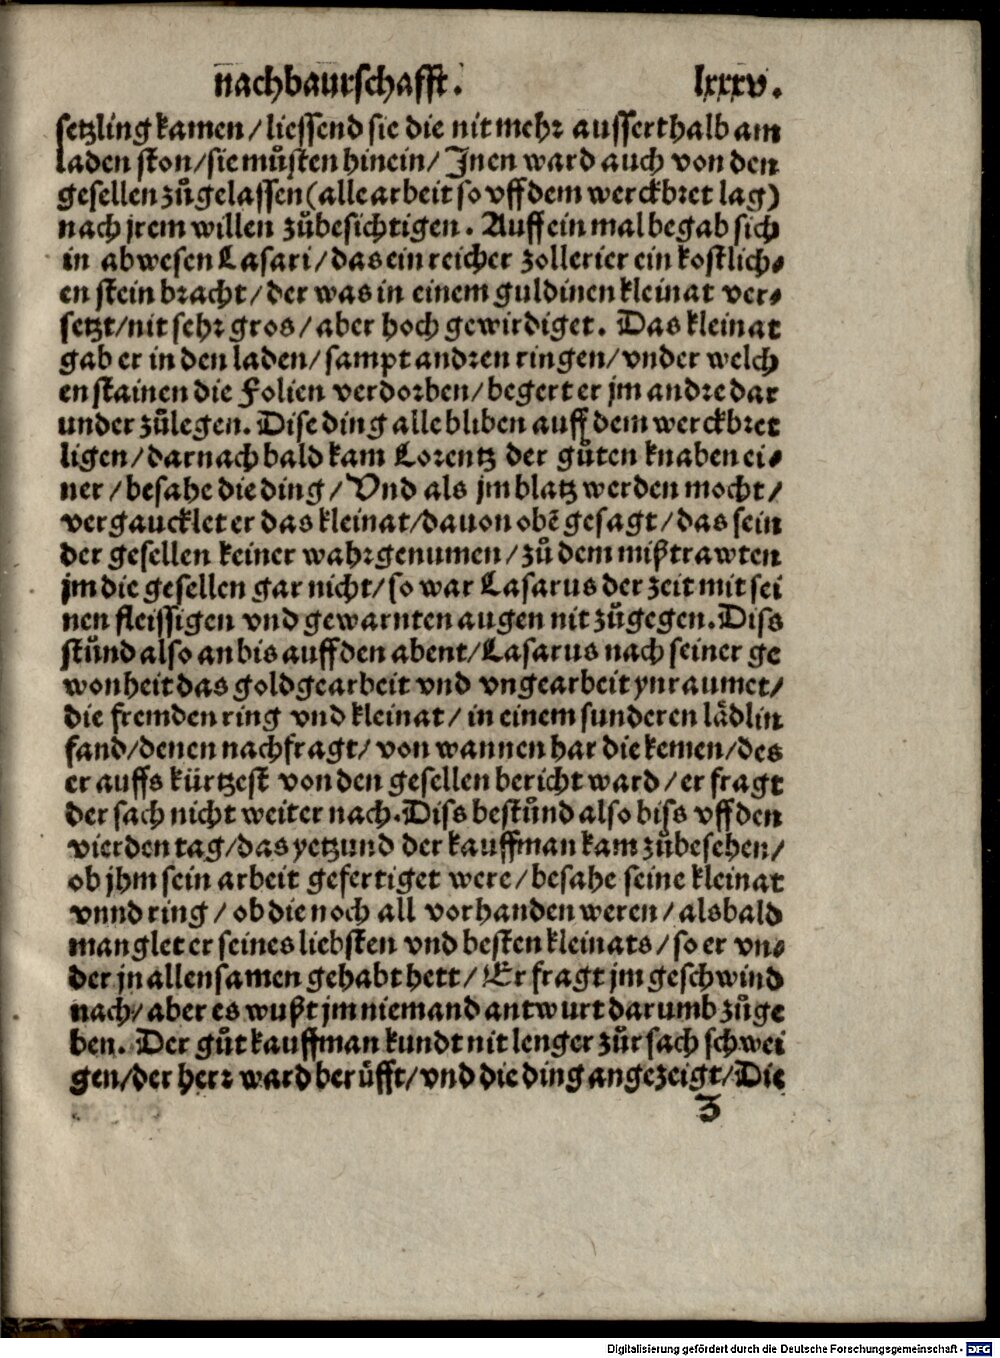 nachbaurschafft. lxxxv.
setzling kamen/ liessend sie die nit mehr ausserthalb am
laden ston/ sie muͦsten hinein/ Jnen ward auch von den
gesellen zuͦgelassen (alle arbeit so vff dem werckbret lag)
nach jrem willen zuͦbesichtigen. Auff ein mal begab sich
in abwesen Lasari/ das ein reicher zollerier ein kostlich⸗
en stein bracht/ der was in einem guldinen kleinat ver⸗
setzt/ nit sehr gros/ aber hoch gewirdiget. Das kleinat
gab er in den laden/ sampt andren ringen/ vnder welch
en stainen die Folien verdorben/ begert er jm andre dar
under zuͦlegen. Dise ding alle bliben auff dem werckbret
ligen/ darnach bald kam Lorentz der guͦten knaben ei⸗
ner/ besahe die ding/ Vnd als jm blatz werden mocht/
vergaucklet er das kleinat/ dauon obē gesagt/ das sein
der gesellen keiner wahrgenumen/ zuͦ dem mißtrawten
jm die gesellen gar nicht/ so war Lasarus der zeit mit sei
nen fleissigen vnd gewarnten augen nit zuͦgegen. Diss
stuͦnd also an bis auff den abent/ Lasarus nach seiner ge
wonheit das gold gearbeit vnd vngearbeit ynraumet/
die fremden ring vnd kleinat/ in einem sunderen laͤdlin
fand/ denen nachfragt/ von wannen har die kemen/ des
er auffs kürtzest von den gesellen bericht ward/ er fragt
der sach nicht weiter nach. Diss bestuͦnd also biss vff den
vierden tag/ das yetzund der kauffman kam zuͦbesehen/
ob jhm sein arbeit gefertiget were/ besahe seine kleinat
vnnd ring/ ob die noch all vorhanden weren/ als bald
manglet er seines liebsten vnd besten kleinats/ so er vn⸗
der jn allensamen gehabt hett/ Er fragt jm geschwind
nach/ aber es wußt jm niemand antwurt darumb zuͦge
ben. Der guͦt kauffman kundt nit lenger zuͦr sach schwei
gen/ der herr ward beruͤfft/ vnd die ding angezeigt/ Die
Z
Digitalisierung gefördert durch die Deutsche Forschungsgemeinschaft - DFG